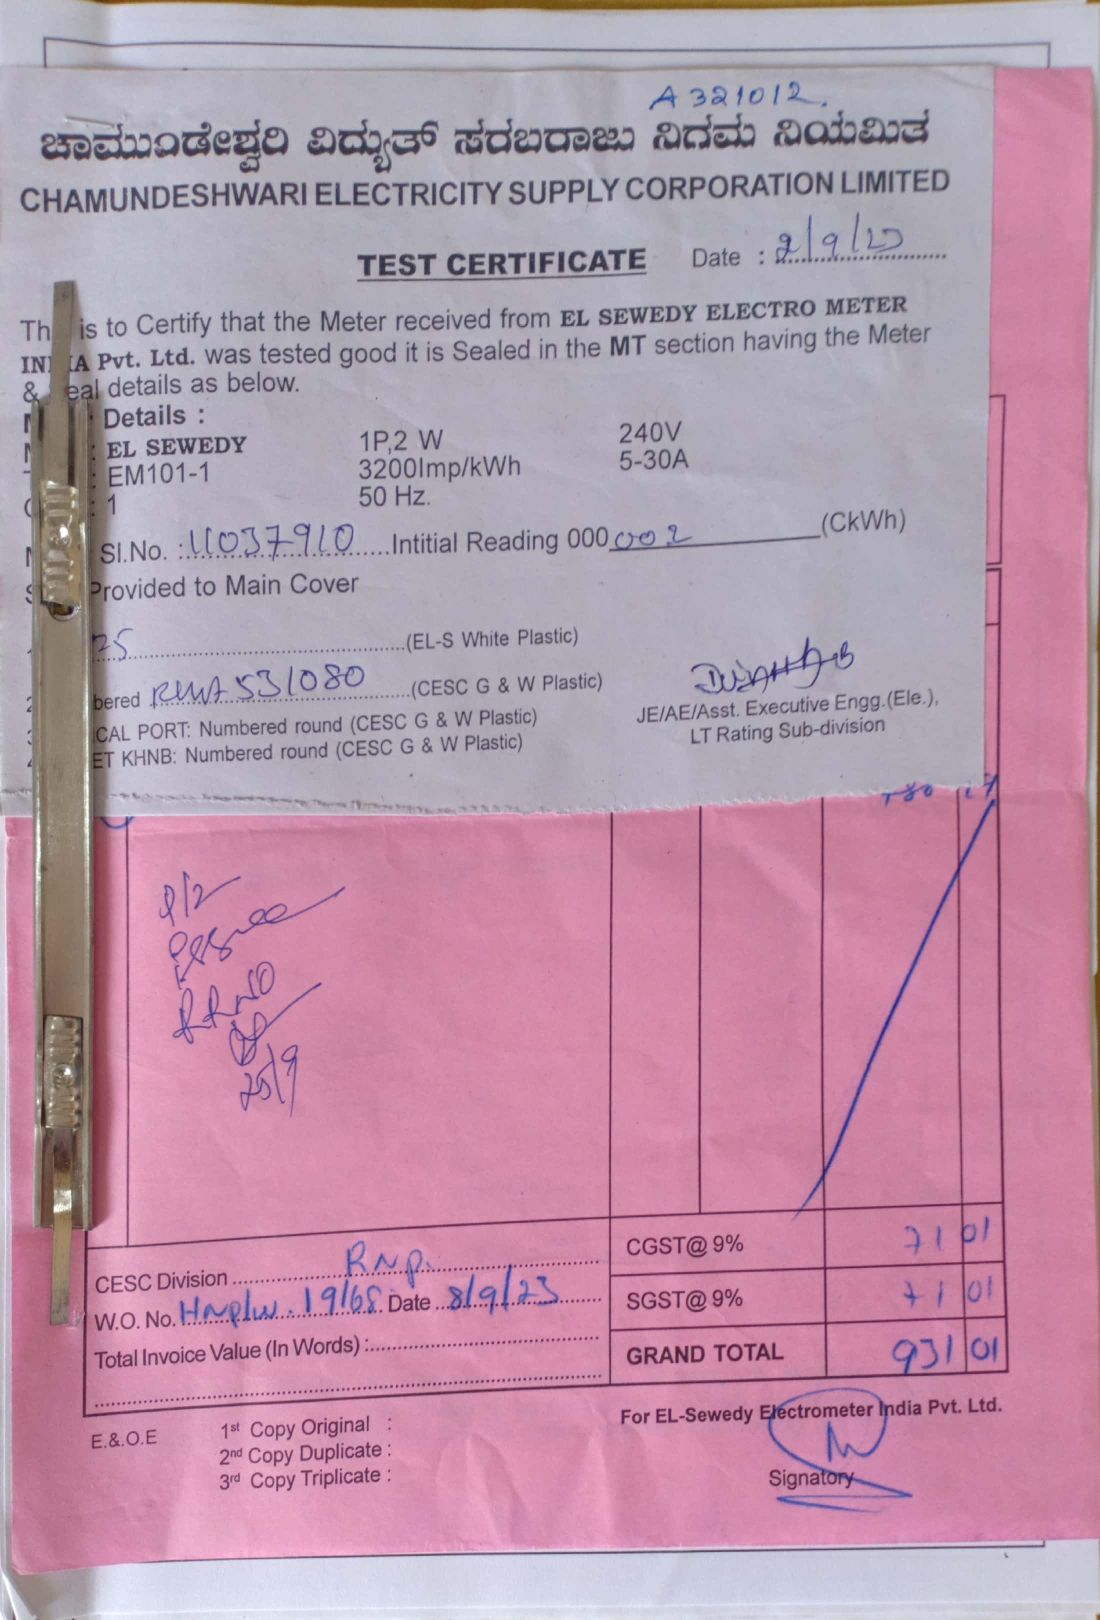 A 321012.
ಚಾಮುಂಡೇಶ್ವರಿ ವಿದ್ಯುತ್ ಸರಬರಾಜು ನಿಗಮ ನಿಯಮಿತ
CHAMUNDESHWARI ELECTRICITY SUPPLY CORPORATION LIMITED
TEST CERTIFICATE Date : 2/9/23
is to Certify that the Meter received from EL SEWEDY ELECTRO METER
Pvt. Ltd. was tested good it is Sealed in the MT section having the Meter
& details as below.
Details :
: EL SEWEDY 1P,2 W 240V
: EM101-1 3200Imp/kWh 5-30A
: 1 50 Hz.
Sl.No. : 11037910 Intitial Reading 000 002 (CkWh)
Provided to Main Cover
25 (EL-S White Plastic)
531080 (CESC G & W Plastic)
CAL PORT: Numbered round (CESC G & W Plastic)
ET KHNB: Numbered round (CESC G & W Plastic)
JE/AE/Asst. Executive Engg.(Ele.),
LT Rating Sub-division
RRNO
25/9
CESC Division RNP.
W.O. No. 19/68 Date 8/9/23
Total Invoice Value (In Words) :
CGST@ 9% 71 01
SGST@ 9% 71 01
GRAND TOTAL 931 01
E.&.O.E
1st Copy Original :
2nd Copy Duplicate :
3rd Copy Triplicate :
For EL-Sewedy Electrometer India Pvt. Ltd.
Signatory